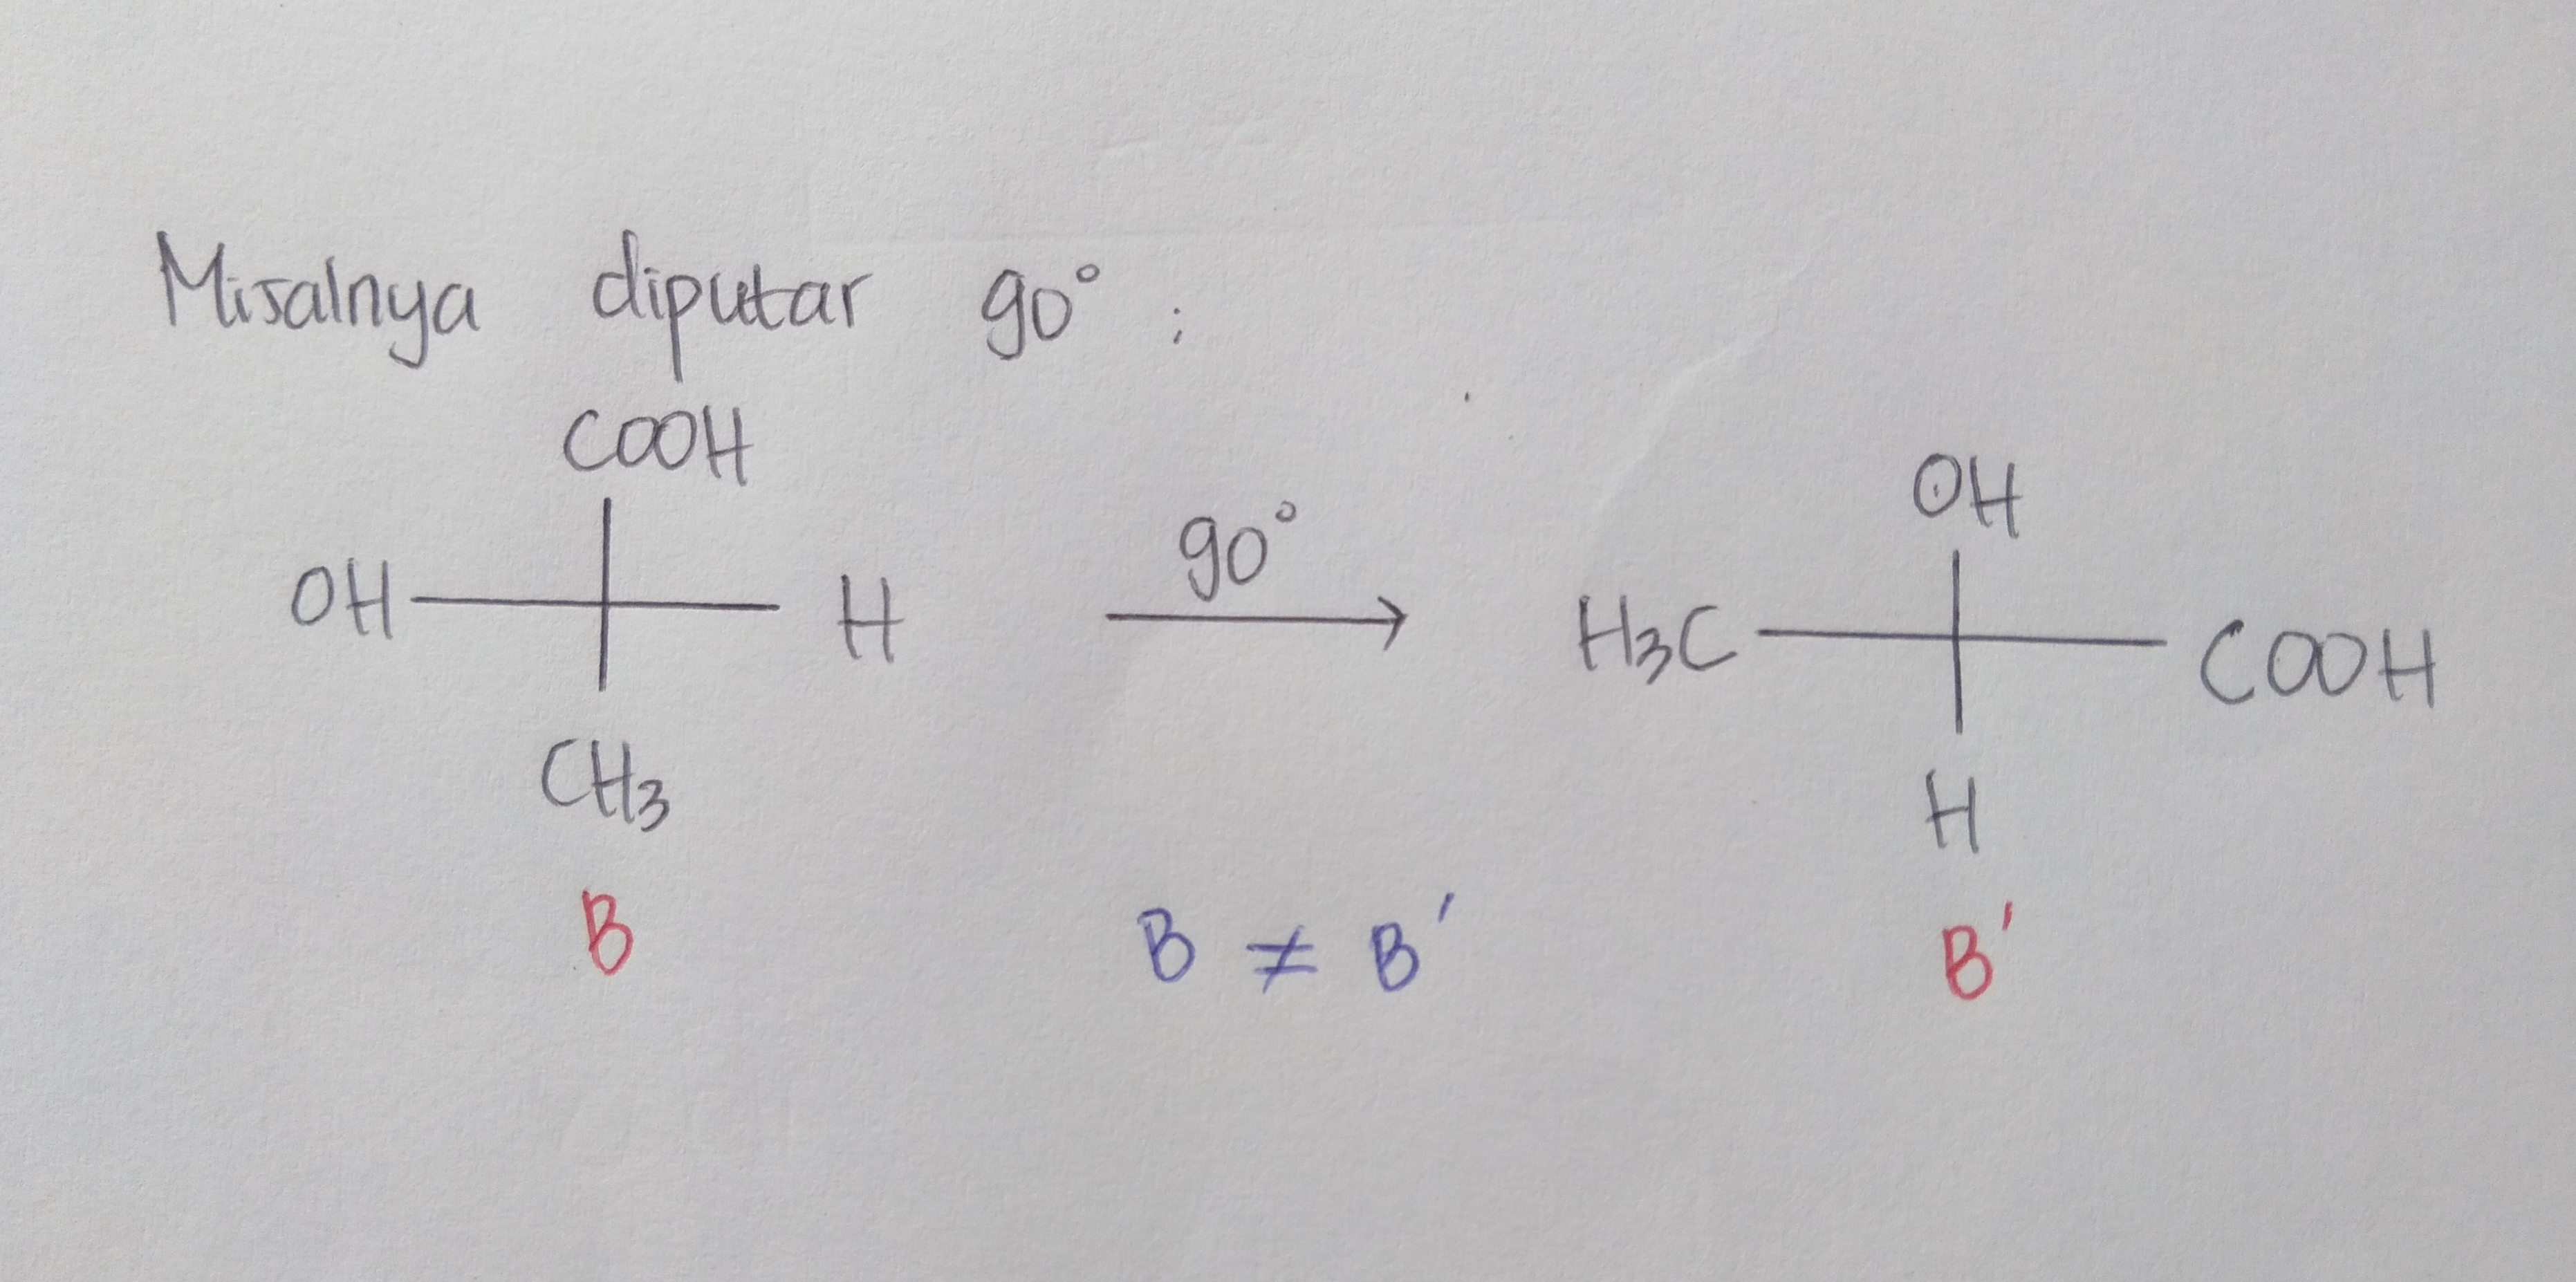 Misalnya diputar 90° :
COOH
OH H
CH3
B
90°
B ≠ B'
OH
H3C COOH
H
B'